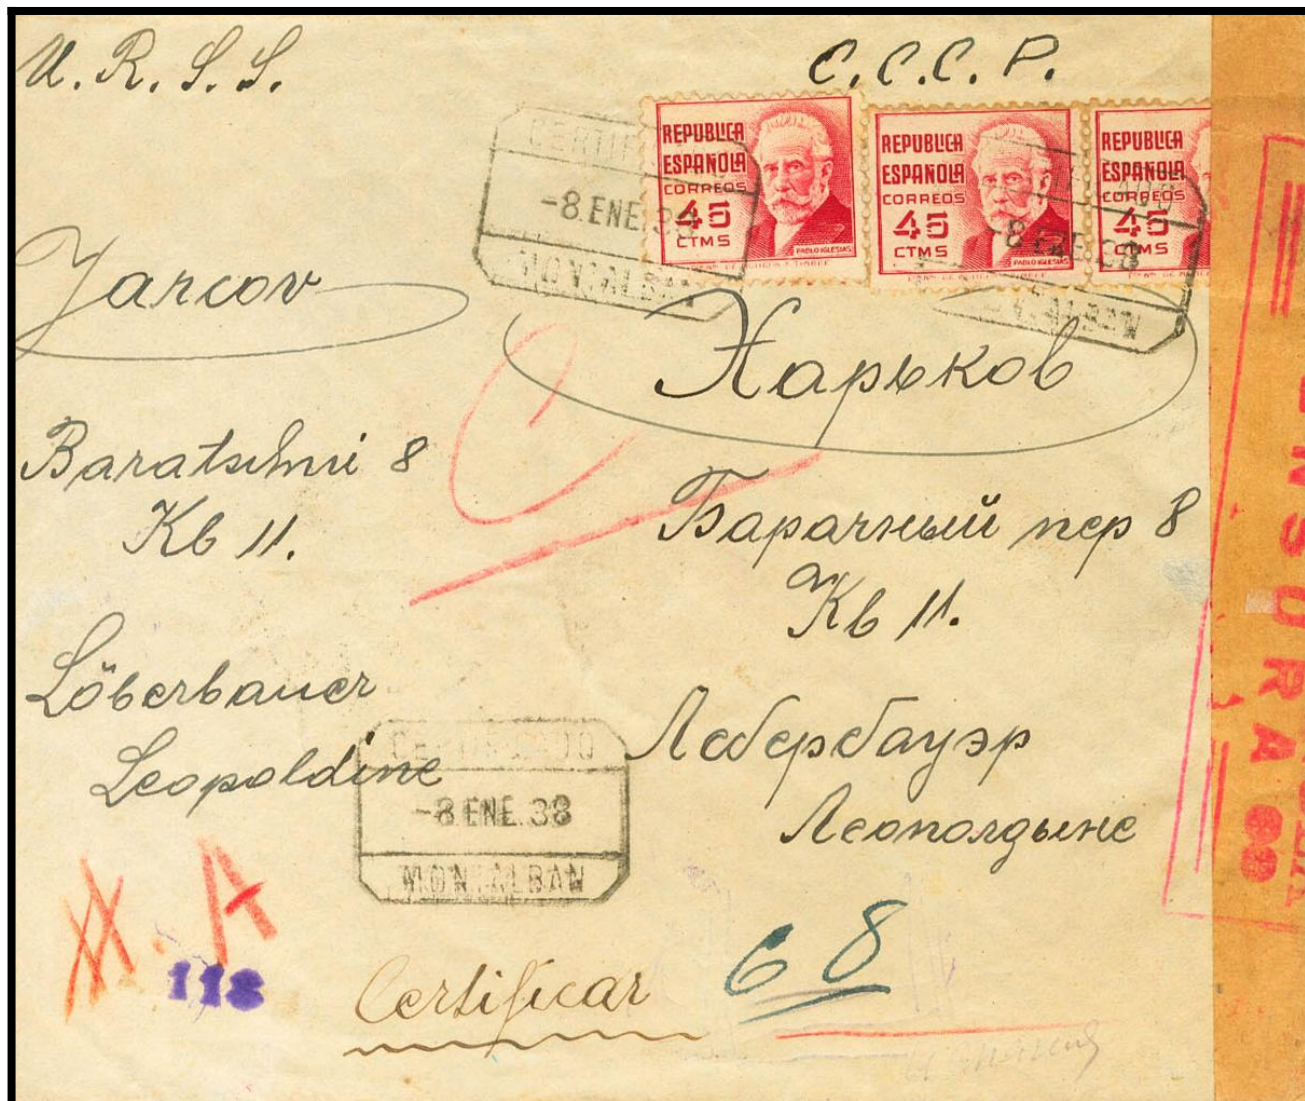 U. R. S. S.
C. C. C. P.
CERTIFICADO
-8 ENE. 38
MONTALBAN
REPUBLICA
ESPAÑOLA
CORREOS
45
CTMS
PABLO IGLESIAS
REPUBLICA
ESPAÑOLA
CORREOS
45
CTMS
PABLO IGLESIAS
REPUBLICA
ESPAÑOLA
CORREOS
45
CTMS
-8 ENE. 38
MONTALBAN
Jarcov
Харьков
Baratschni 8
Кв 11.
Барачный пер 8
Кв 11.
Löberbauer
Leopoldine
Лебербауэр
Леополдыне
CERTIFICADO
-8 ENE. 38
MONTALBAN
A
118
Certificar
68
ENSURA